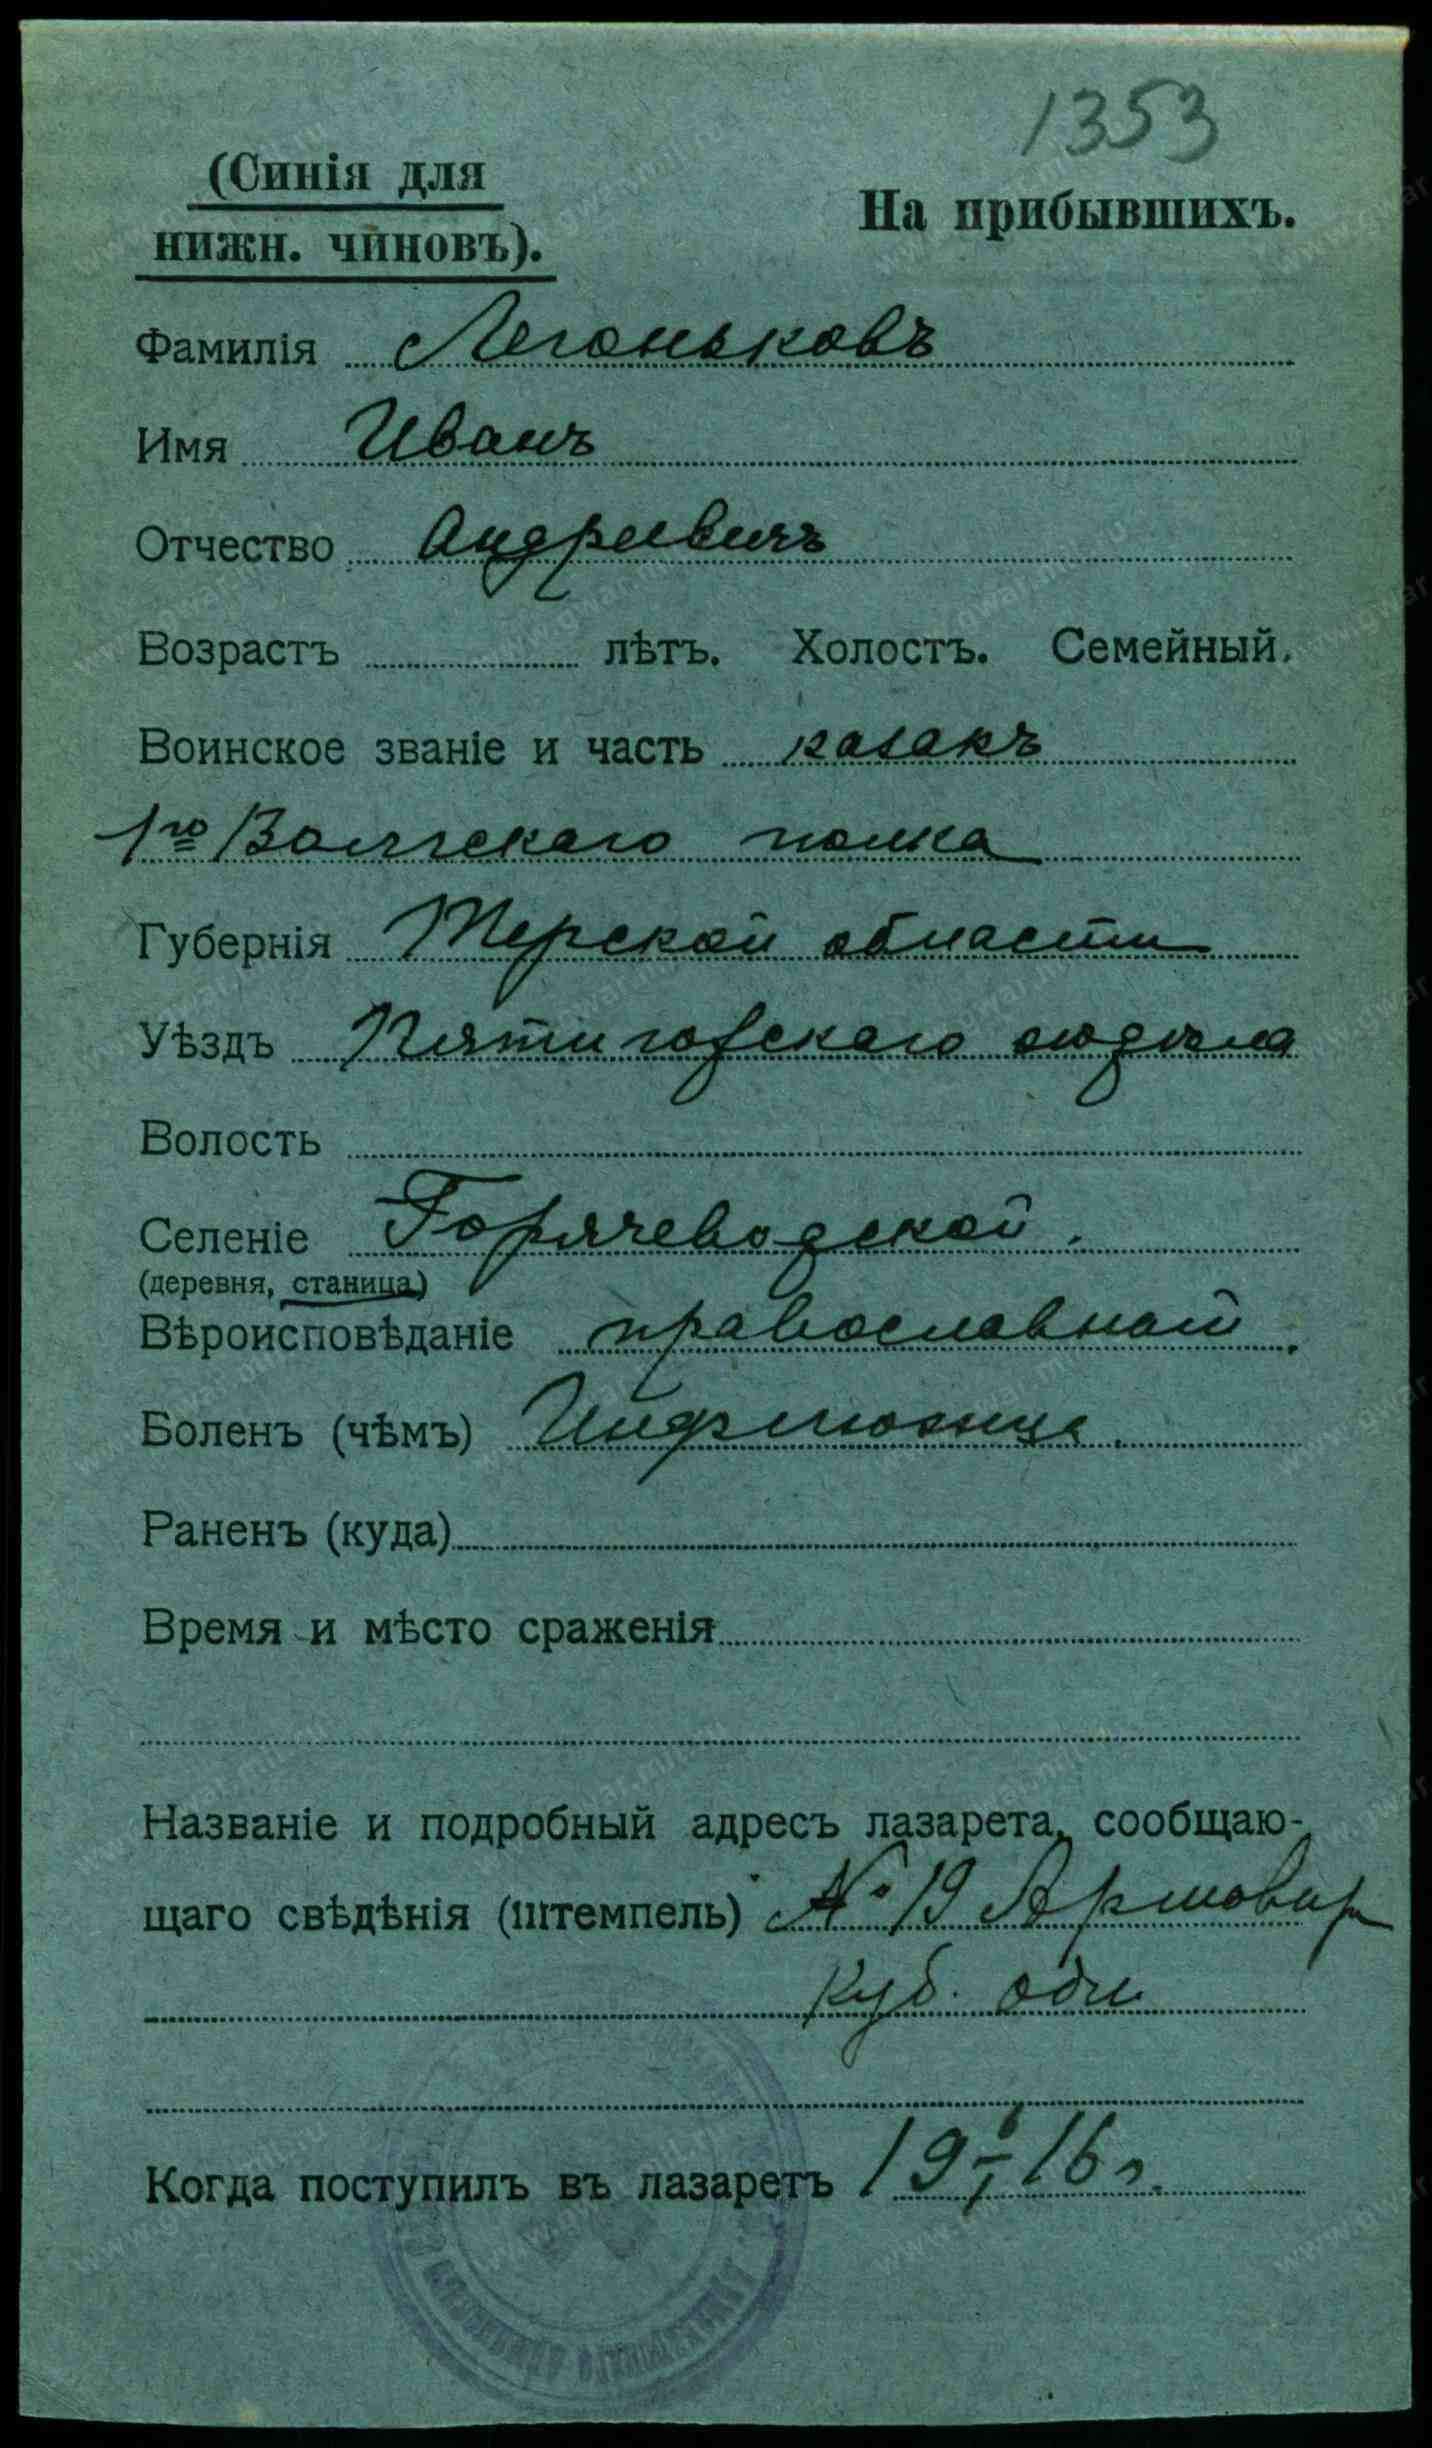 1353
(Синія для
нижн. чиновъ).
На прибывшихъ.
Фамилія Легоньковъ
Имя Иванъ
Отчество Андреевичъ
Возрастъ лѣтъ. Холостъ. Семейный.
Воинское званіе и часть казакъ
1го Волгскаго полка
Губернія Терской области
Уѣздъ Пятигорскаго отдѣла
Волость
Селеніе Горячеводской.
(деревня, станица)
Вѣроисповѣданіе православной.
Боленъ (чѣмъ) Инфлюэнца.
Раненъ (куда)
Время и мѣсто сраженія
Названіе и подробный адресъ лазарета, сообщаю-
щаго свѣдѣнія (штемпель) № 19 Армавир
Куб. обл
Когда поступилъ въ лазаретъ 19 I 16 г.
www.gwar.mil.ru